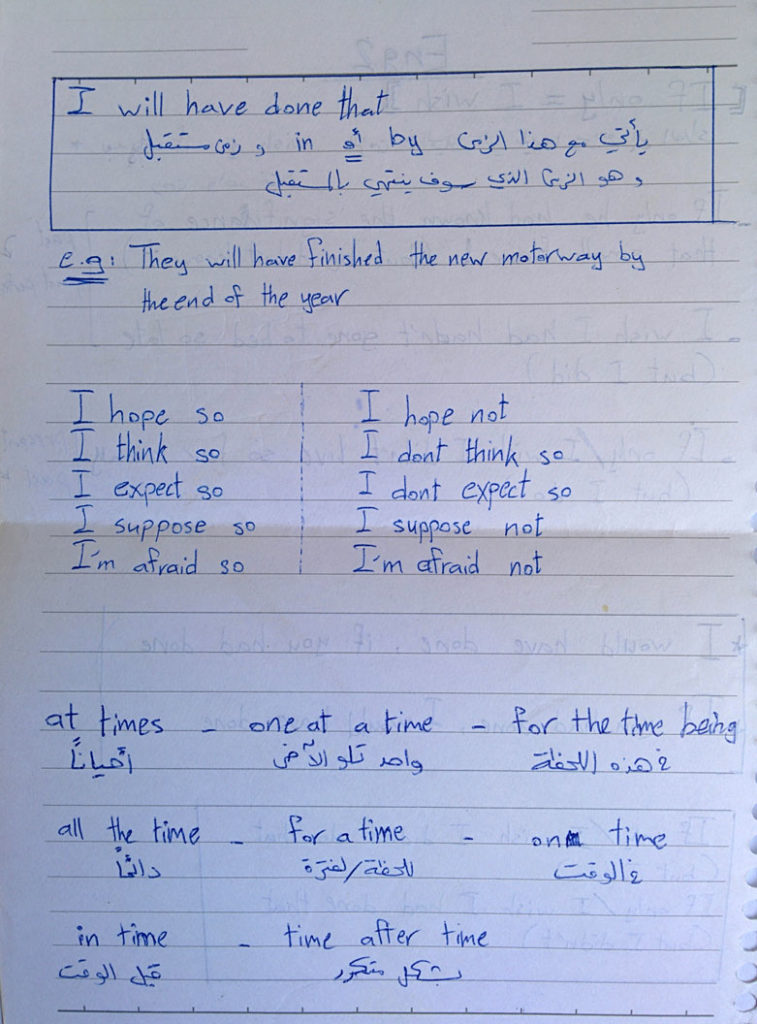 I will have done that
يأتي مع هذا الزمن by أو in و زمن مستقبل
و هو الزمن الذي سوف ينتهي بالمستقبل
e.g: They will have finished the new motorway by
the end of the year
I hope so I hope not
I think so I dont think so
I expect so I dont expect so
I suppose so I suppose not
I'm afraid so I'm afraid not
at times - one at a time - for the time being
أحياناً واحد تلو الآخر في هذه اللحظة
all the time - for a time - on time
دائماً للحظة/لفترة في الوقت
in time - time after time
قبل الوقت بشكل متكرر